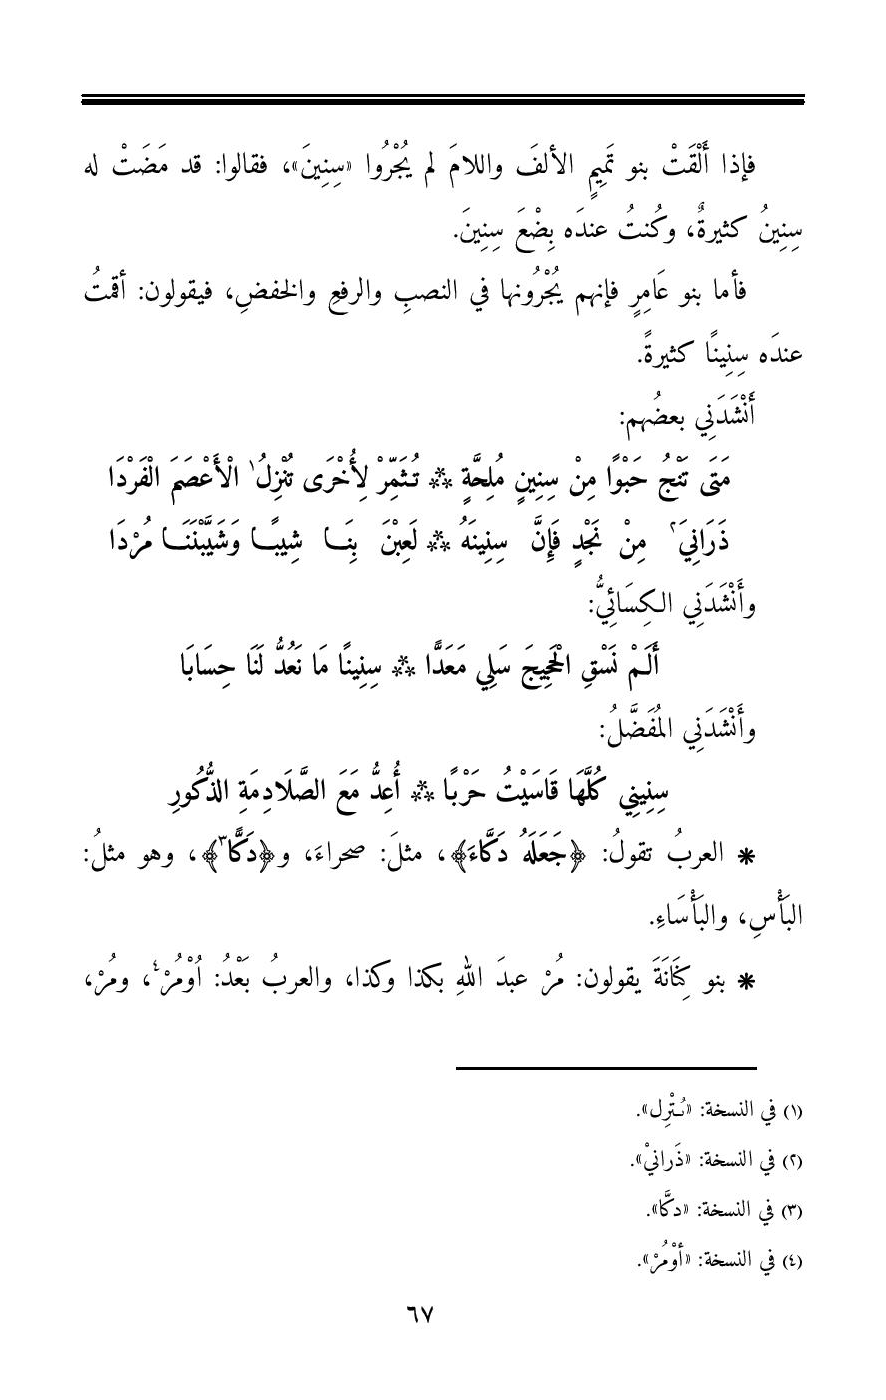 فإذا أَلْقَتْ بنو تَمِيمٍ الألفَ واللامَ لم يُجْرُوا «سِنِينَ»، فقالوا: قد مَضَتْ له
سِنِينُ كثيرةٌ، وكُنتُ عندَه بِضْعَ سِنِينَ.
فأما بنو عَامِرٍ فإنهم يُجْرُونها في النصبِ والرفعِ والخفضِ، فيقولون: أقمتُ
عندَه سِنِينًا كثيرةً.
أَنْشَدَنِي بعضُهم:
مَتَى تَنْجُ حَبْوًا مِنْ سِنِينٍ مُلِحَّةٍ ** تُثَمِّرْ لِأُخْرَى تُنْزِلُ١ الْأَعْصَمَ الْفَرْدَا
ذَرَانِيَ٢ مِنْ نَجْدٍ فَإِنَّ سِنِينَهُ ** لَعِبْنَ بِنَـا شِيبًـا وَشَيَّبْنَنَـا مُرْدَا
وأَنْشَدَنِي الكِسَائِيُّ:
أَلَمْ نَسْقِ الْحَجِيجَ سَلِي مَعَدًّا ** سِنِينًا مَا نَعُدُّ لَنَا حِسَابَا
وأَنْشَدَنِي المُفَضَّلُ:
سِنِينِي كُلَّهَا قَاسَيْتُ حَرْبًا ** أُعِدُّ مَعَ الصَّلَادِمَةِ الذُّكُورِ
* العربُ تقولُ: ﴿جَعَلَهُ دَكَّاءَ﴾، مثلَ: صحراءَ، و﴿دَكًّا٣﴾، وهو مثلُ:
البَأْسِ، والبَأْسَاءِ.
* بنو كِنَانَةَ يقولون: مُرْ عبدَ اللهِ بكذا وكذا، والعربُ بَعْدُ: اُوْمُرْ٤، ومُرْ،
(١) في النسخة: «نُـتْرِل».
(٢) في النسخة: «ذَرانيْ».
(٣) في النسخة: «دكَّا».
(٤) في النسخة: «أوْمُرْ».
٦٧